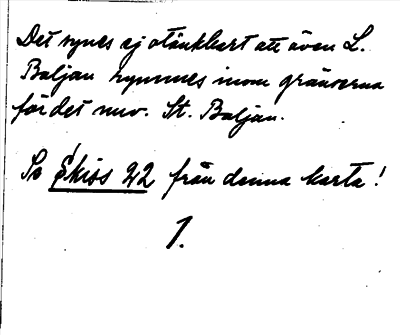 Det synes ej otänkbart att även L.
Baljan rymmes inom gränserna
för det nuv. St. Baljan.
Se Skiss 22 från denna karta!
1.